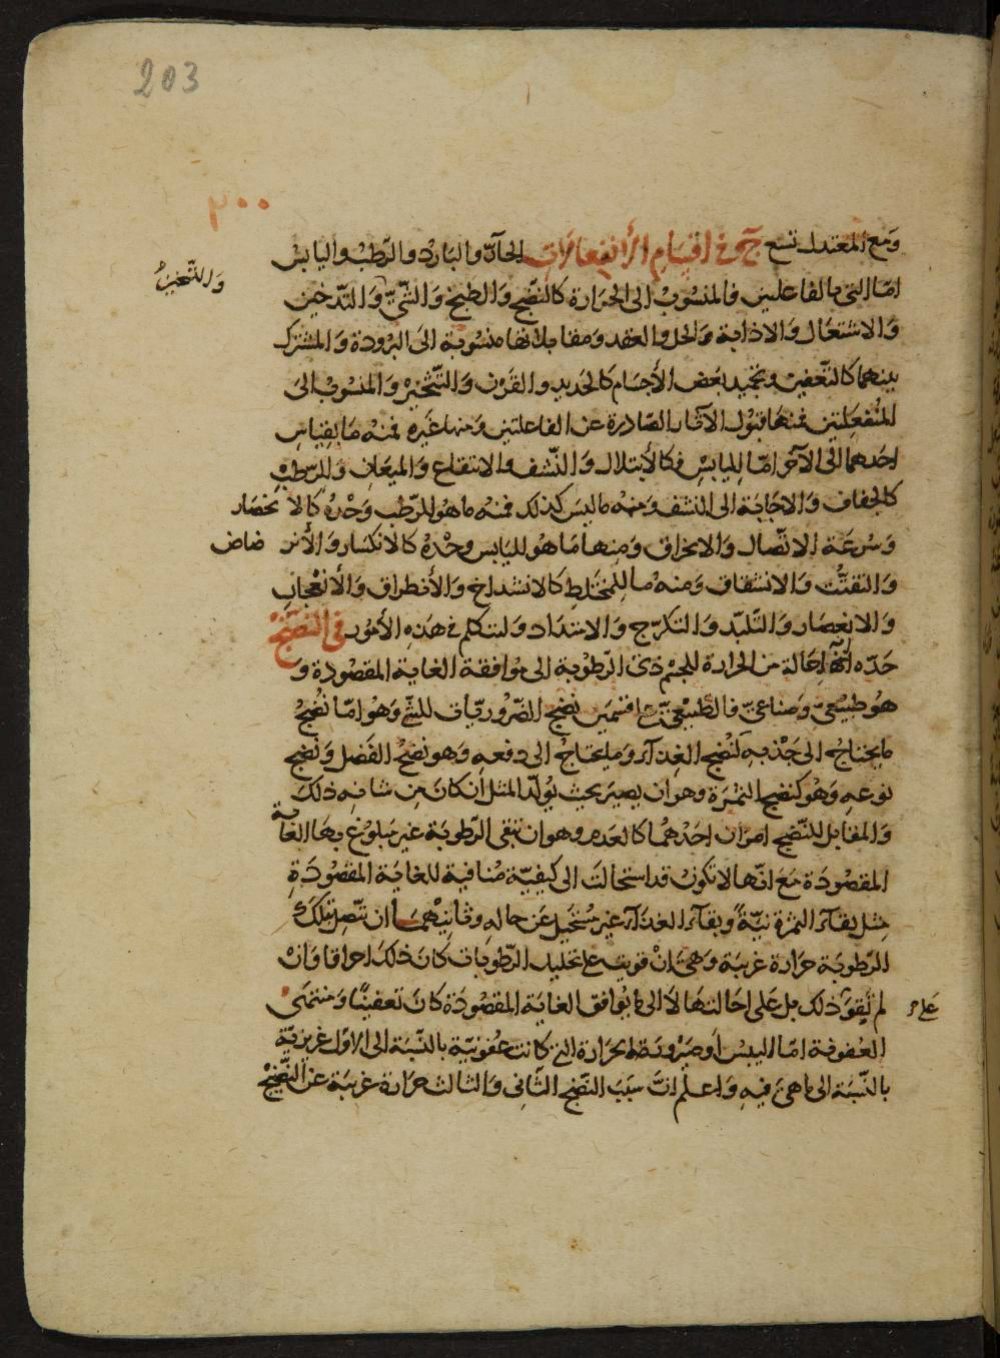 203
٢٠٠
ومع المعتدل تسع ج في اقسام الأنفعالات الحارّ والبارد والرّطب واليابس
امّا التي بالفاعلين فالمنسوب الى الحرارة كالنّضج والطبخ والشّيّ والتّدخين
والتبخير
والاشتعال والاذابة والحل والعقد ومقابلاتها منسوبة الى البرودة والمشترك
بينهما كالتّعفين وتجميد بعض الأجسام كالحديد والقرن والتّخثير والمنسوب الى
المنفعلتين فمنها قبول الآثار الصّادرة عن الفاعلتين ومنها غيره فمنه ما بقياس
احدهما الى الآخر امّا لليابس فكالأبتلال والنّشف والانتقاع والميعان وللرّطب
كالجفاف والاجابة الى النشف ومنه ما ليس كذلك فمنه ما هو للرّطب وحده كالانحصار
وسرعة الاتّصال والانخراق ومنها ما هو لليابس وحده كالانكسار والأنرضاض
والتفتّت والانشقاق ومنه ما للمختلط كالانشداخ والأنطراق والأنعجان
والانعصار والتّلبّد والتكرّج والامتداد ولنتكلم في هذه الأمور في النضج
حدّه انّه احالة من الحرارة للجسم ذى الرّطوبة الى موافقة الغاية المقصودة و
هو طبيعيّ وصناعيّ فالطّبيعيّ على قسمين نضج الضّروريّات للشّئ وهو امّا نضج
ما يحتاج الى جذبه كنضج الغذآء وما يحتاج الى دفعه وهو نضج الفضل ونضج
نوعه وهو كنضج الثّمرة وهو ان يصير بحيث يولّد المثل ان كان من شانه ذلك
والمقابل للنّضج امران احدهما كالعدم وهو ان تبقى الرّطوبة غير مبلوغ بها الغاية
المقصودة مع انّها لا تكون قد استحالت الى كيفيّة منافية للغاية المقصودة
مثل بقآء الثمرة نيّة وبقآء الغذآء غير مستحيل عن حاله وثانيهما ان تتّصل بتلك
الرّطوبة حرارة غريبة وهي ان قويت على تحليل الرّطوبات كان ذلك احراقا وان
لم تقو على ذلك بل على احالتها لا الى ما يوافق الغاية المقصودة كان تعفينًا ومنتهى
العفونة امّا اليبس او صيرورة الحرارة التي كانت عفونيّة بالنّسبة الى الاوّل غريزيّة
بالنّسبة الى ما هي فيه واعلم انّ سبب النّضج الثّانى والثالث حرارة غريبة عن النّضيج